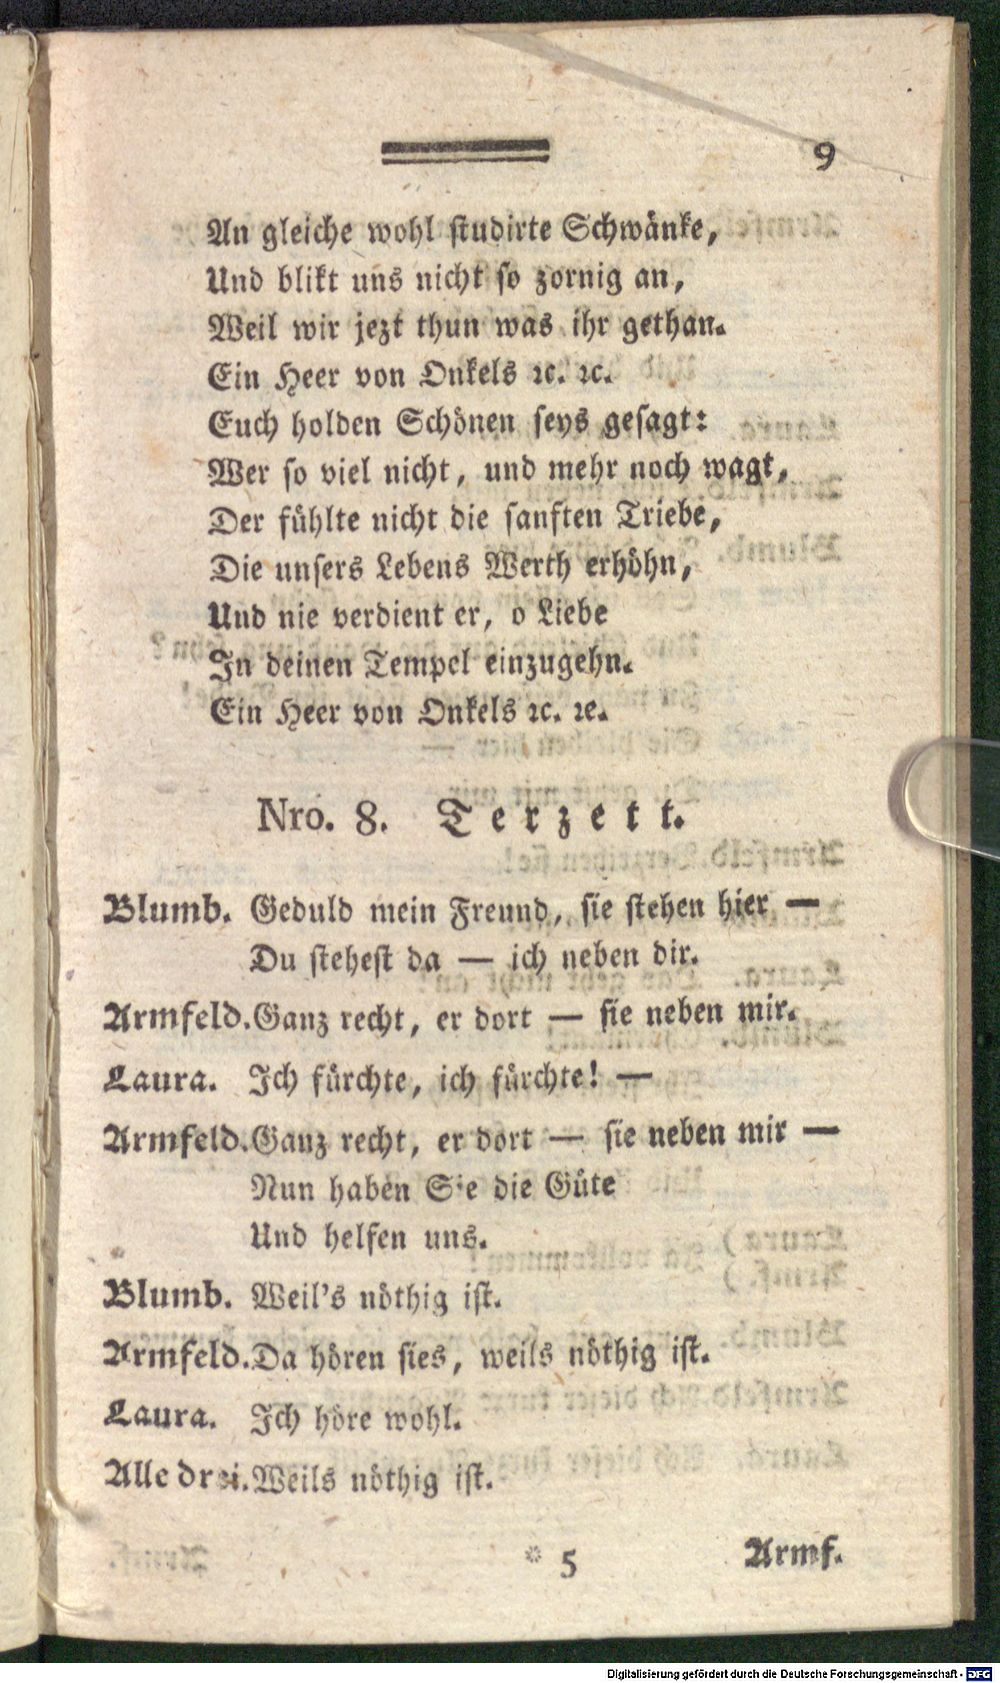 9
An gleiche wohl studirte Schwänke,
Und blikt uns nicht so zornig an,
Weil wir jezt thun was ihr gethan.
Ein Heer von Onkels ꝛc. ꝛc.
Euch holden Schönen seys gesagt:
Wer so viel nicht, und mehr noch wagt,
Der fühlte nicht die sanften Triebe,
Die unsers Lebens Werth erhöhn,
Und nie verdient er, o Liebe
In deinen Tempel einzugehn.
Ein Heer von Onkels ꝛc. ꝛc.
Nro. 8. Terzett.
Blumb. Geduld mein Freund, sie stehen hier —
Du stehest da — ich neben dir.
Armfeld. Ganz recht, er dort — sie neben mir.
Laura. Ich fürchte, ich fürchte! —
Armfeld. Ganz recht, er dort — sie neben mir —
Nun haben Sie die Güte
Und helfen uns.
Blumb. Weil's nöthig ist.
Armfeld. Da hören sies, weils nöthig ist.
Laura. Ich höre wohl.
Alle drei. Weils nöthig ist.
* 5 Armf.
Digitalisierung gefördert durch die Deutsche Forschungsgemeinschaft - DFG